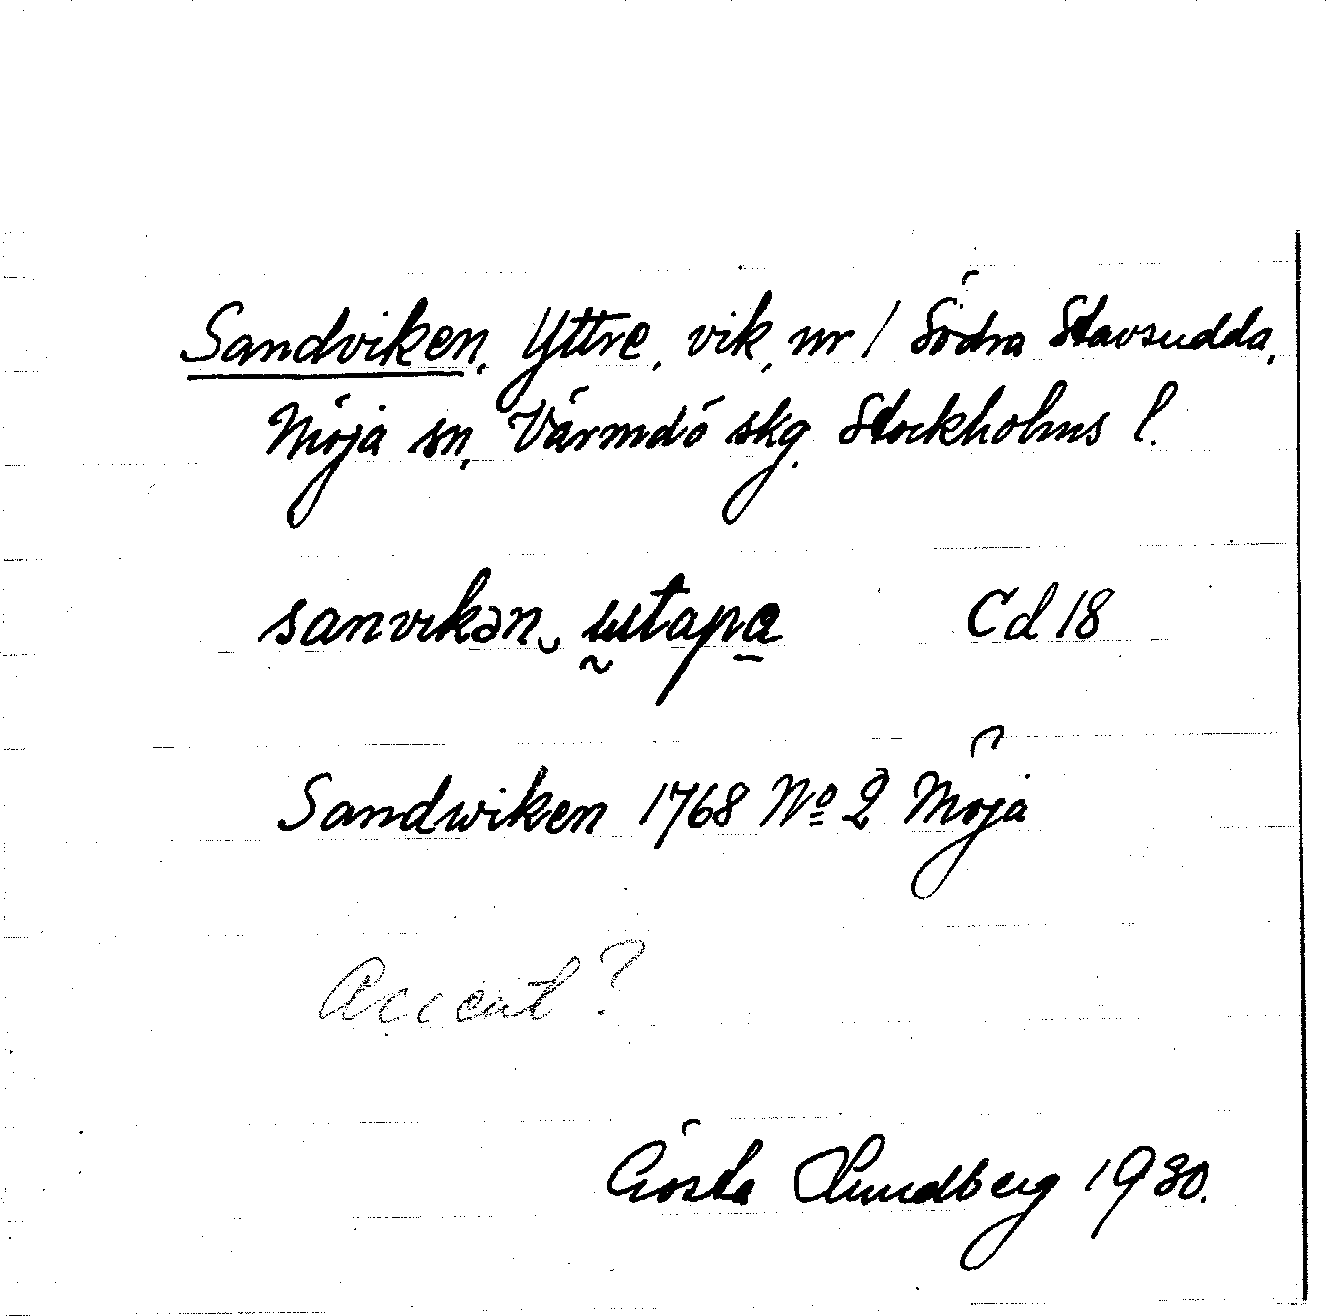 Sandviken, Yttre, vik, nr 1 Södra Stavsudda,
Möja sn, Värmdö skg. Stockholms l.
sanvikən, Cd 18
Sandwiken 1768 No 2 Möja
Accent?
Gösta Lundberg 1930.